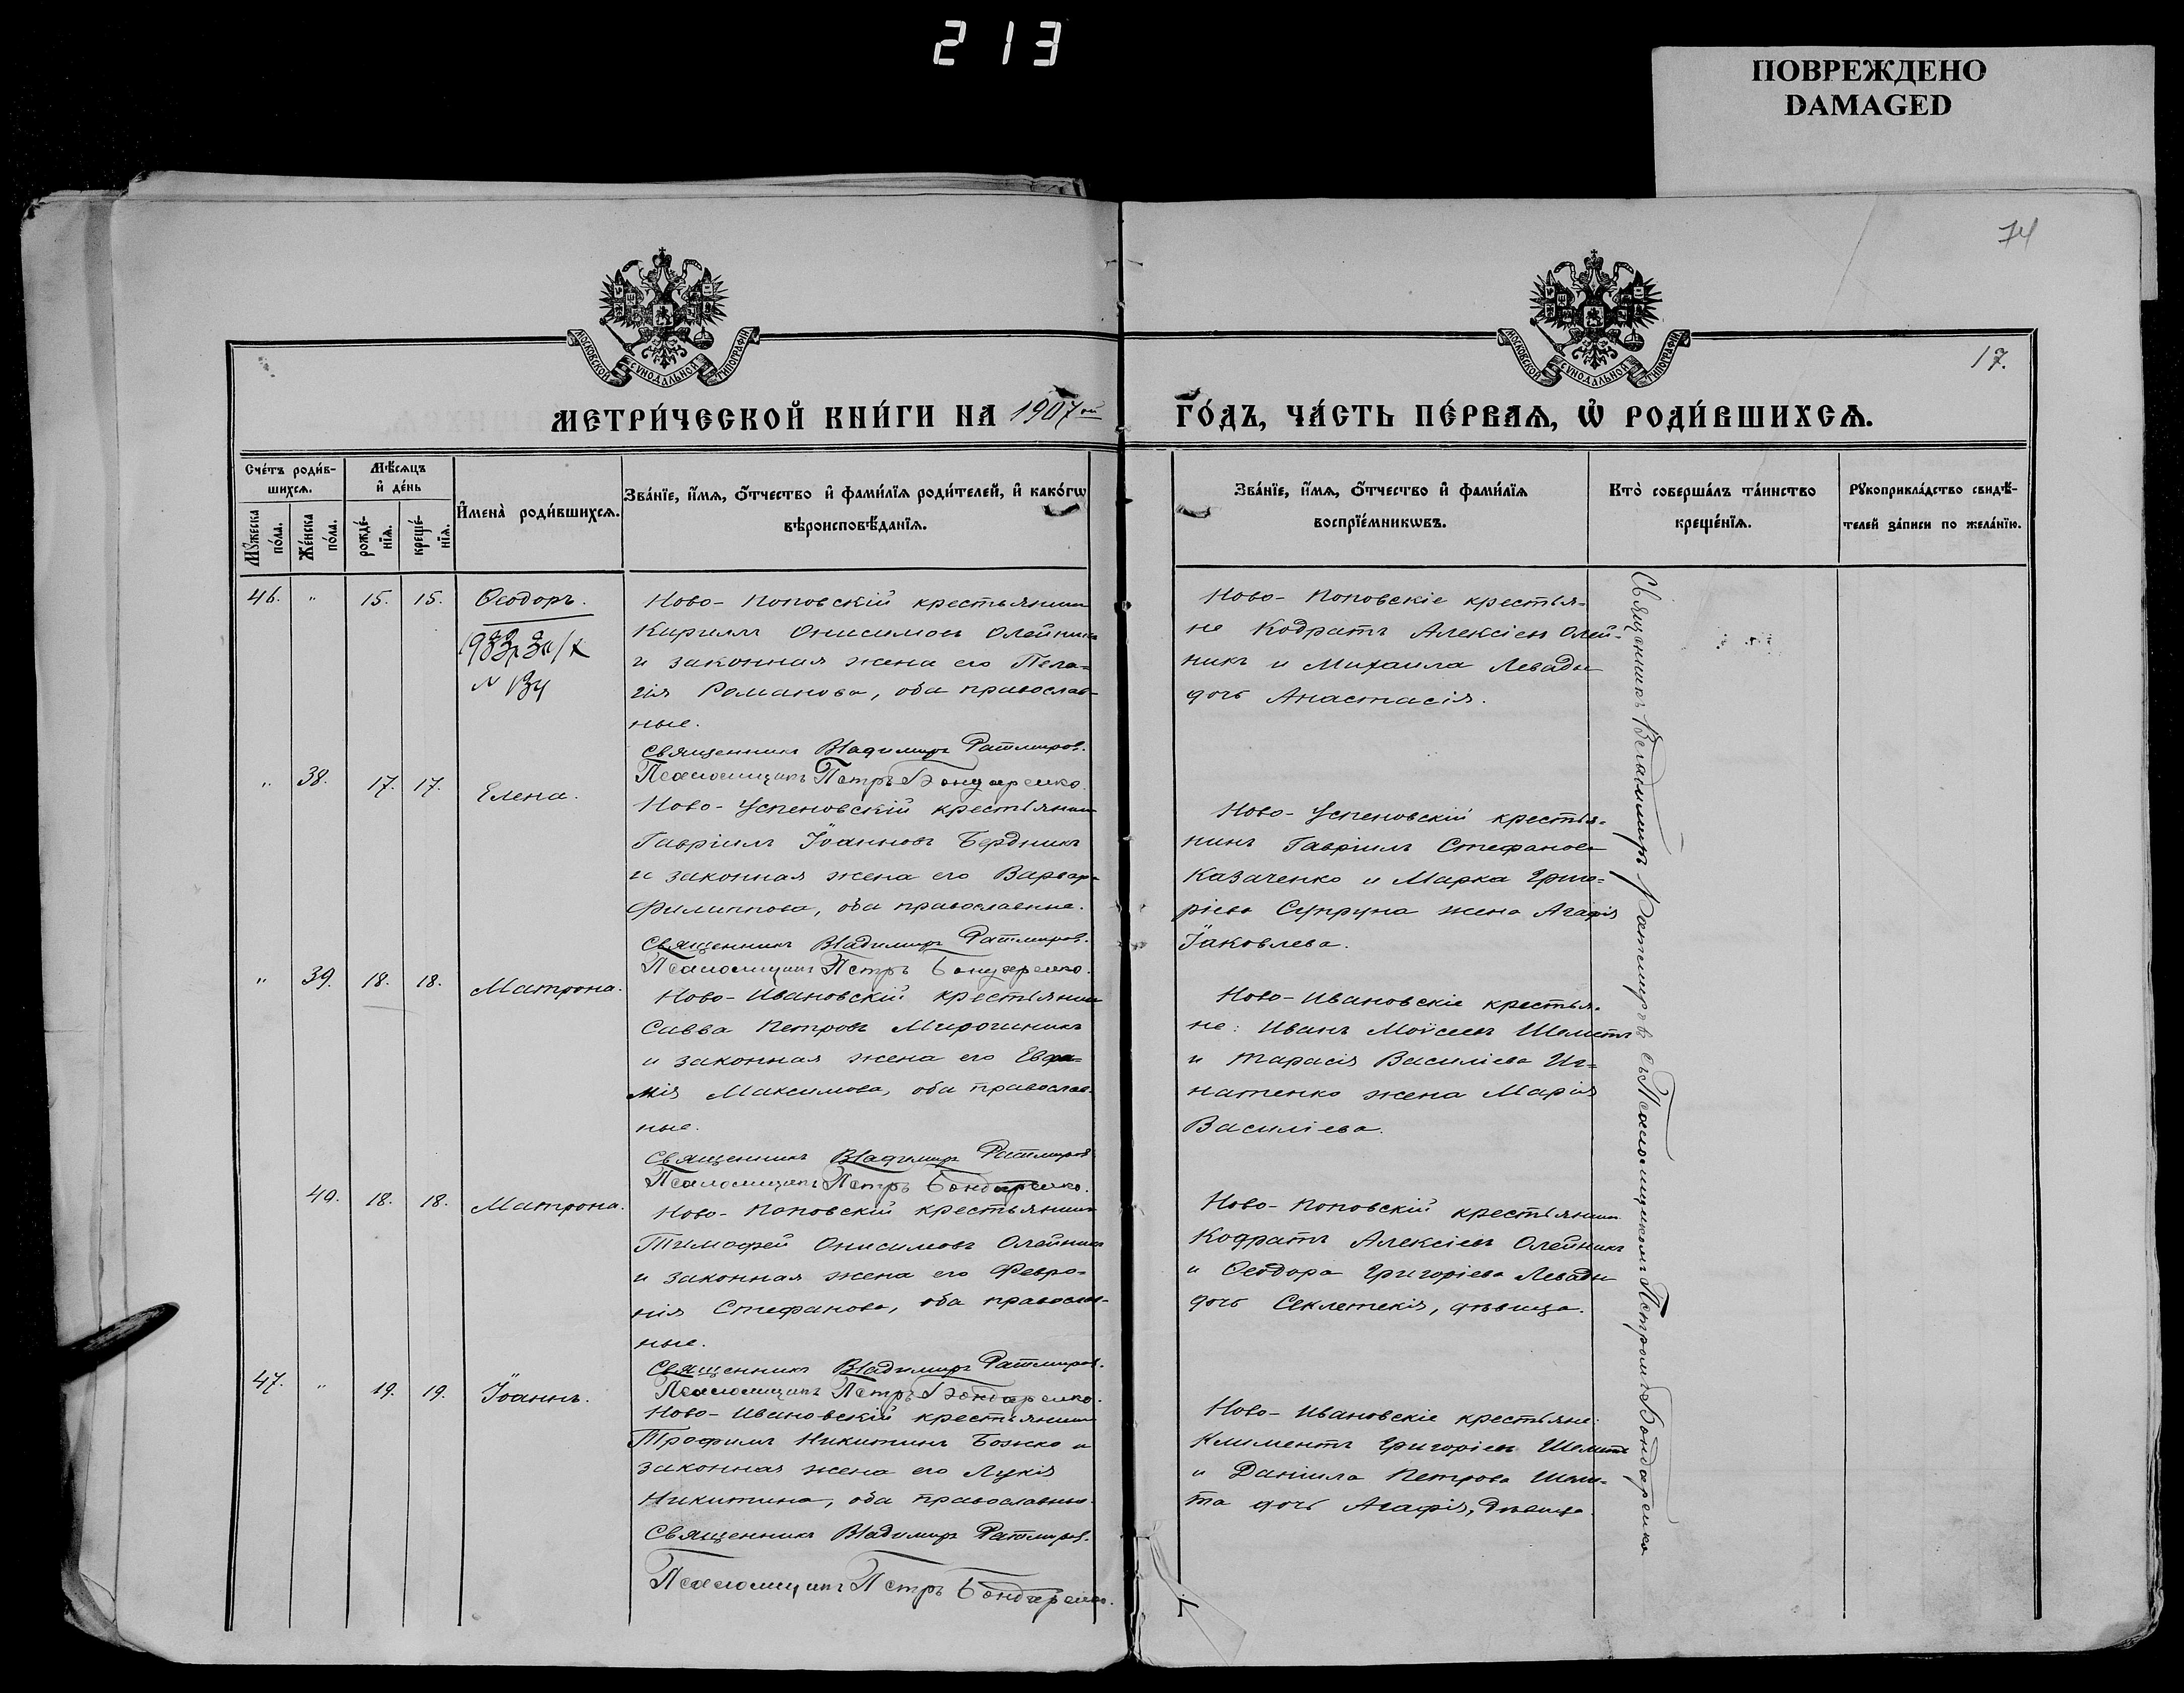 213
ПОВРЕЖДЕНО
DAMAGED
74
17.
МОСКОВСКОЙ СУНОДАЛЬНОЙ ТИПОГРАФІИ
МОСКОВСКОЙ СУНОДАЛЬНОЙ ТИПОГРАФІИ
МЕТРИ́ЧЕСКОЙ КНИ́ГИ НА 1907 ой ГО́ДЪ, ЧА́СТЬ ПЕ́РВАѦ, Ѡ҆ РОДИ́ВШИХСѦ.
Сче́тъ роди́в-
шихсѧ.
Мꙋ́жеска по́ла.
Же́нска по́ла.
Мѣ́сѧцъ
и҆ де́нь
рожде́-
нїѧ.
креще́-
нїѧ.
И҆мена̀ роди́вшихсѧ.
Зва́нїе, и҆́мѧ, ѻ҆́тчество и҆ фами́лїѧ роди́телей, и҆ како́гѡ
вѣроисповѣ́данїѧ.
Зва́нїе, и҆́мѧ, ѻ҆́тчество и҆ фами́лїѧ
воспрїе́мникѡвъ.
Кто̀ соверша́лъ та́инство
креще́нїѧ.
Рꙋкоприкла́дство свидѣ́-
телей за́писи по жела́нїю.
46. " 15. 15. Ѳеодоръ.
N 134
Ново-Поповскій крестьянинъ
Кириллъ Онисимовъ Олейникъ
и законная жена его Пела-
гія Романова, оба православ-
ные.
Священникъ Владимиръ Ратмировъ.
Псаломщикъ Петръ Бондаренко.
Ново-Поповскіе крестья-
не Кодратъ Алексіевъ Олей-
никъ и Михаила Левады
дочь Анастасія.
" 38. 17. 17. Елена.
Ново-Успеновскій крестьянинъ
Гавріилъ Іоанновъ Бердникъ
и законная жена его Варвара
Филиппова, оба православные.
Священникъ Владимиръ Ратмировъ.
Псаломщикъ Петръ Бондаренко.
Ново-Успеновскій крестья-
нинъ Гавріилъ Стефановъ
Казаченко и Марка Григо-
ріева Супруна жена Агафія
Іаковлева.
" 39. 18. 18. Матрона.
Ново-Ивановскій крестьянинъ
Савва Петровъ Мирочникъ
и законная жена его Евфи-
мія Максимова, оба православ-
ные.
Священникъ Владимиръ Ратмировъ
Псаломщикъ Петръ Бондаренко.
Ново-Ивановскіе крестья-
не: Иванъ Моисеевъ Шеметъ
и Тарасія Василіева Иг-
натенко жена Марія
Василіева.
40. 18. 18. Матрона.
Ново-Поповскій крестьянинъ
Тимофей Онисимовъ Олейникъ
и законная жена его Февро-
нія Стефанова, оба православ-
ные.
Священникъ Владимиръ Ратмировъ.
Псаломщикъ Петръ Бондаренко.
Ново-Поповскій крестьянинъ
Кодратъ Алексіевъ Олейникъ
и Ѳеодора Григоріева Левады
дочь Секлетекія, дѣвица.
47. " 19. 19. Іоаннъ.
Ново-Ивановскій крестьянинъ
Трофимъ Никитинъ Божко и
законная жена его Лукія
Никитина, оба православные.
Священникъ Владимиръ Ратмировъ.
Псаломщикъ Петръ Бондаренко.
Ново-Ивановскіе крестьяне:
Климентъ Григоріевъ Шеметъ
и Даніила Петрова Шеме-
та дочь Агафія, дѣвица.
Священникъ Владимиръ Ратмировъ съ Псаломщикомъ Петромъ Бондаренко